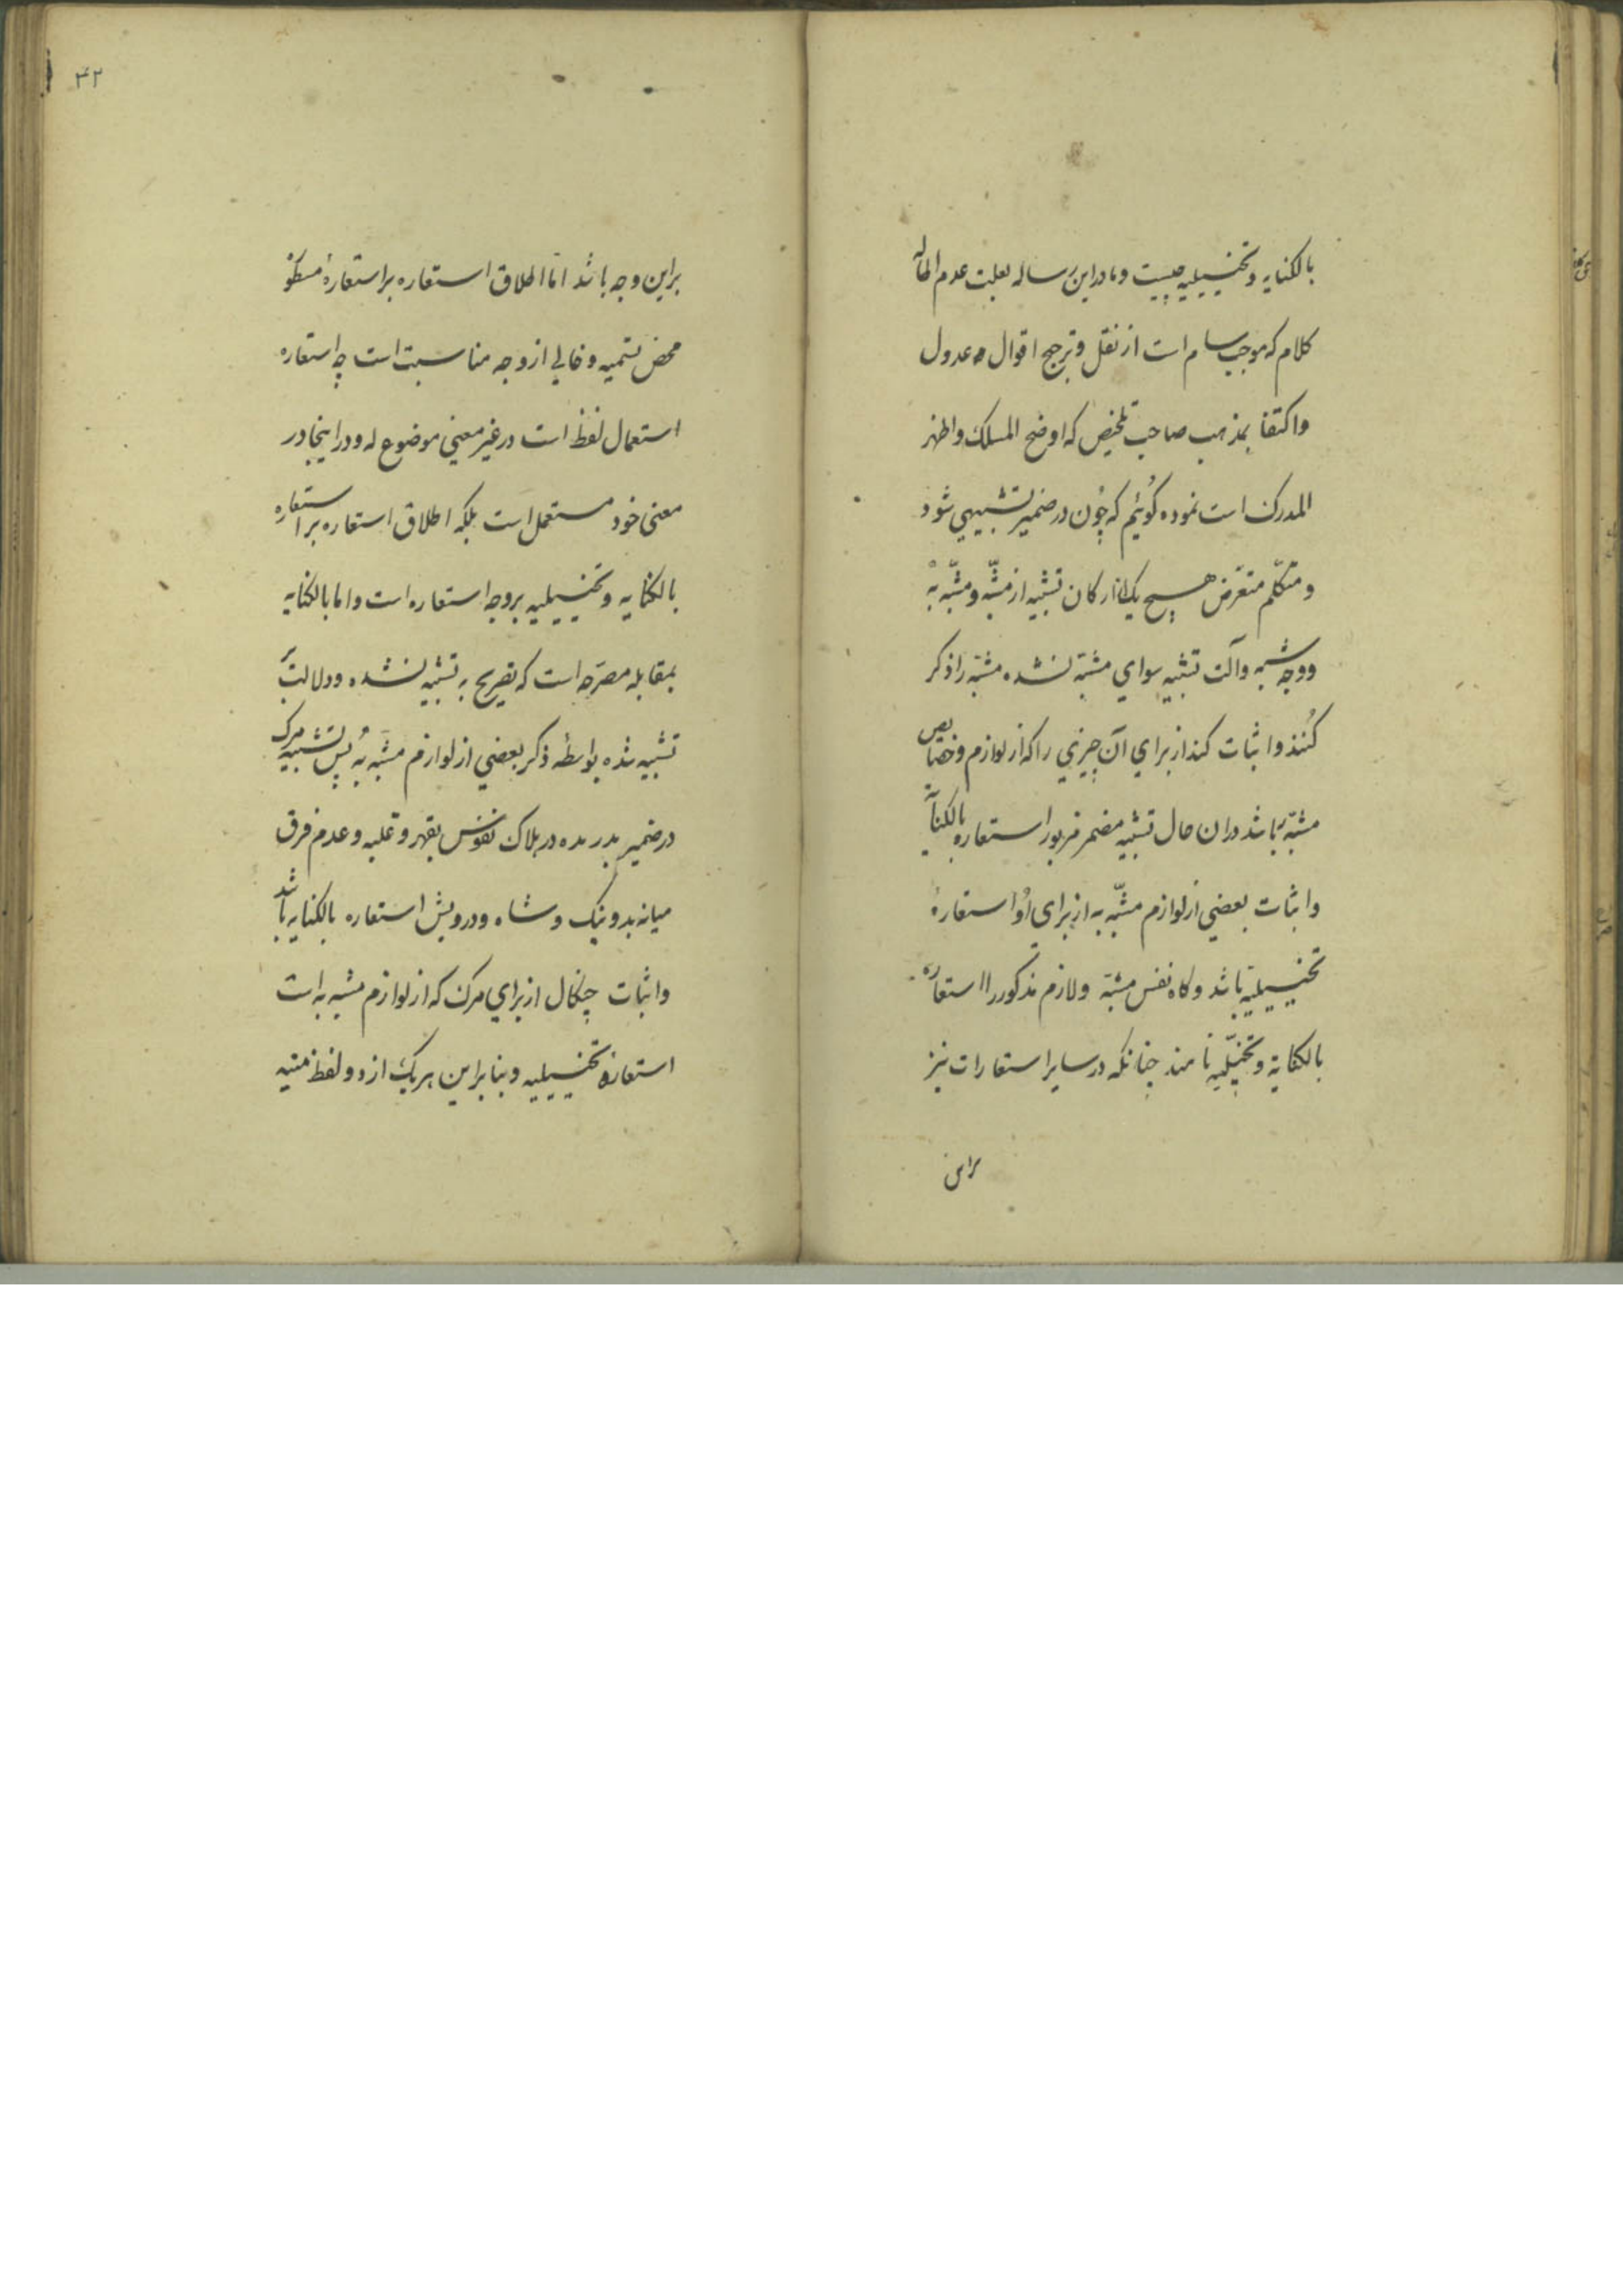 بالکنایه و تخییلیه چیست و ما در این رساله بعلت عدم اطاله
کلام که موجب سام است از نقل و ترجیح اقوال عدول
و اکتفا بمذهب صاحب تلخیص که اوضح المسلک و اظهر
المدرک است نموده کوئیم که چون در ضمیر تشبیهی شود
و متکلم متعرض هیچ یک از ارکان تشبیه از مشبه و مشبه به
و وجه شبه و آلت تشبیه سوای مشبه نشده مشبه را ذکر
کنند و اثبات کند از برای آن چیزی را که از لوازم و خصایص
مشبه به باشد در ان حال تشبیه مضمر مزبور استعاره بالکنایه
و اثبات بعضی از لوازم مشبه به از برای او استعارهٔ
تخییلیه باشد و کاه نفس مشبه و لازم مذکور را استعاره
بالکنایة و تخییلیه نامند چنانکه در سایر استعارات نیز
براین
۴۲
براین وجه باشد اما اطلاق استعاره بر استعارهٔ مسطور
محض تسمیه و خالی از وجه مناسبت است چه استعاره
استعمال لفظ است در غیر معنی موضوع له و در اینجا در
معنی خود مستعمل است بلکه اطلاق استعاره بر استعاره
بالکنایه و تخییلیه بروجه استعاره است و اما بالکنایه
بمقابله مصرحه است که تصریح به تشبیه نشده و دلالت بر
تشبیه شده بواسطه ذکر بعضی از لوازم مشبه به پس تشبیه مرک
در ضمیر بدرنده در هلاک نفوس بقهر و غلبه و عدم فرق
میانه بد و نیک و شاه و درویش استعاره بالکنایه باشد
و اثبات چنکال از برای مرک که از لوازم مشبه به است
استعارهٔ تخییلیه و بنابراین هر یک از دو لفظ منیه